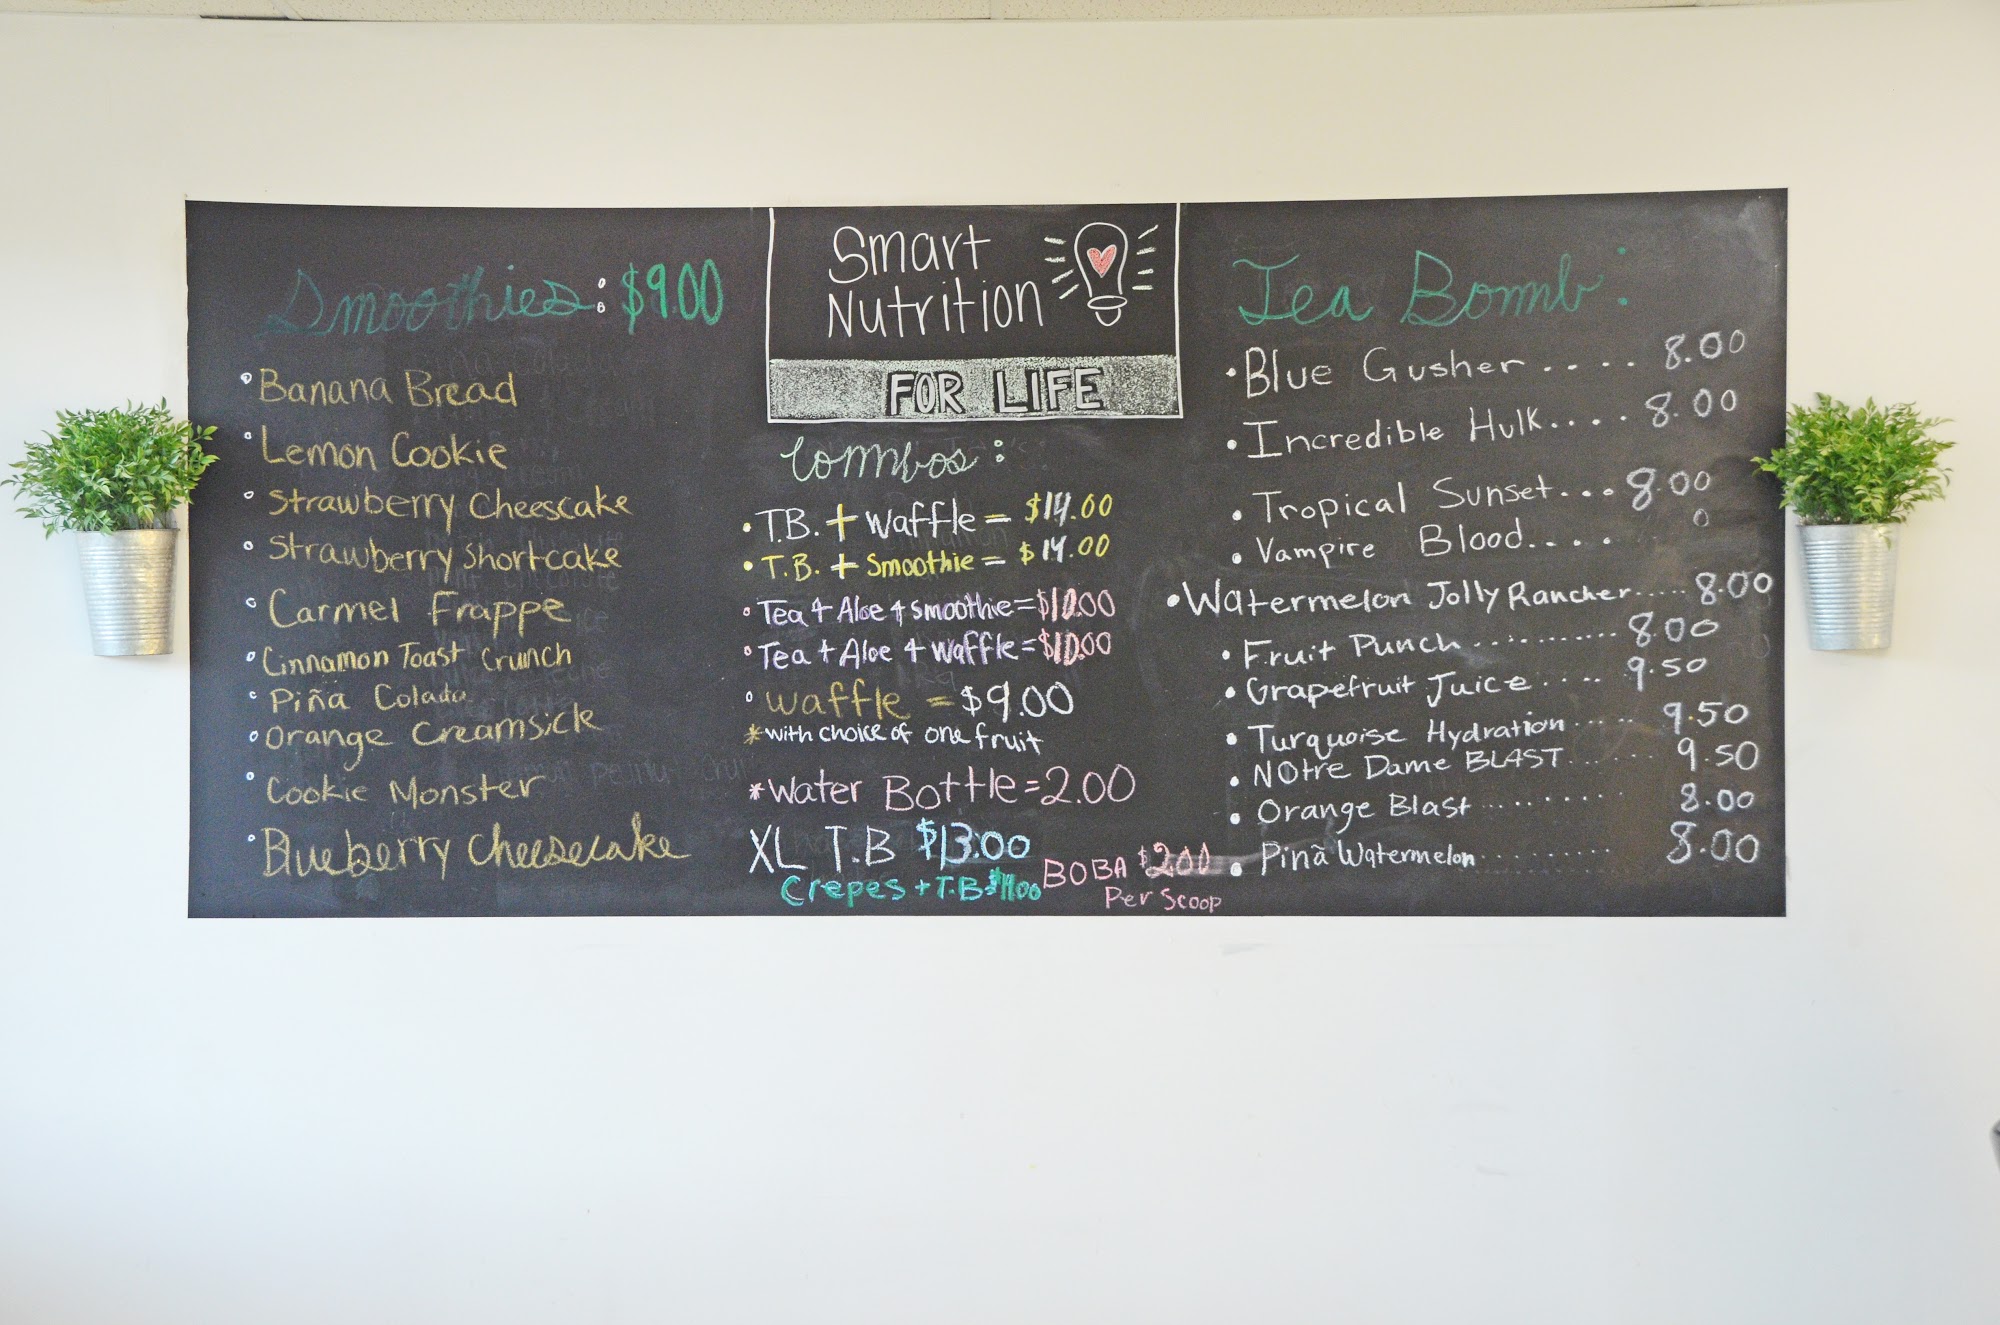 Smoothies: $9.00
° Banana Bread
° Lemon Cookie
° Strawberry Cheescake
° Strawberry Shortcake
° Carmel Frappe
° Cinnamon Toast Crunch
° Piña Colada
° Orange Creamsicle
° Cookie Monster
° Blueberry Cheesecake
Smart
Nutrition
FOR LIFE
Combos:
• T.B. + Waffle = $14.00
• T.B. + Smoothie = $14.00
• Tea + Aloe + Smoothie = $10.00
• Tea + Aloe + Waffle = $10.00
° Waffle = $9.00
* with choice of one fruit
* Water Bottle = 2.00
XL T.B $13.00
Crepes + T.B
BOBA $2.00
Per Scoop
Tea Bomb:
• Blue Gusher.... 8.00
• Incredible Hulk.... 8.00
• Tropical Sunset... 8.00
• Vampire Blood....
• Watermelon Jolly Rancher..... 8.00
• Fruit Punch............ 8.00
• Grapefruit Juice.... 9.50
• Turquoise Hydration..... 9.50
• NOtre Dame BLAST...... 9.50
• Orange Blast.......... 8.00
• Pinã Watermelon.......... 8.00